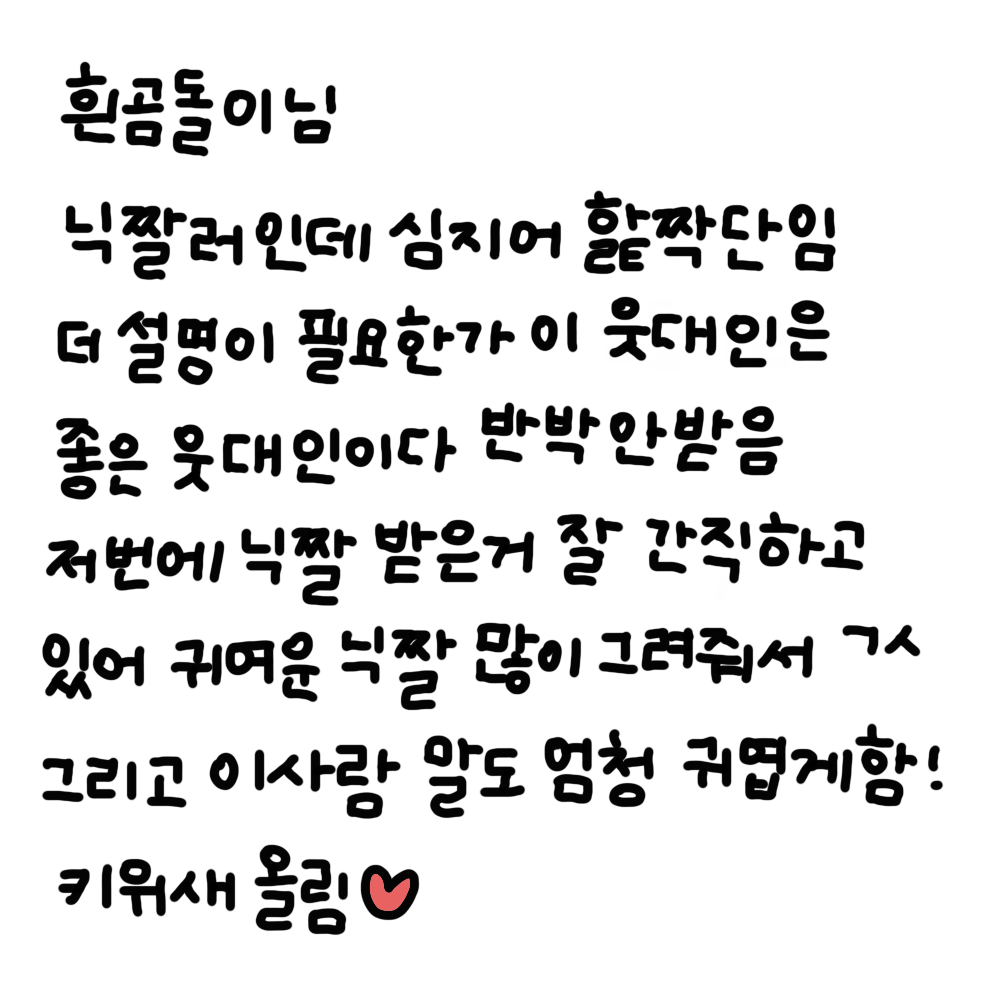 흰곰돌이님
닉짤러인데 심지어 핥짝단임
더 설명이 필요한가 이 웃대인은
좋은 웃대인이다 반박안받음
저번에 닉짤 받은거 잘 간직하고
있어 귀여운 닉짤 많이 그려줘서 ㄱㅅ
그리고 이사람 말도 엄청 귀엽게함!
키위새 올림